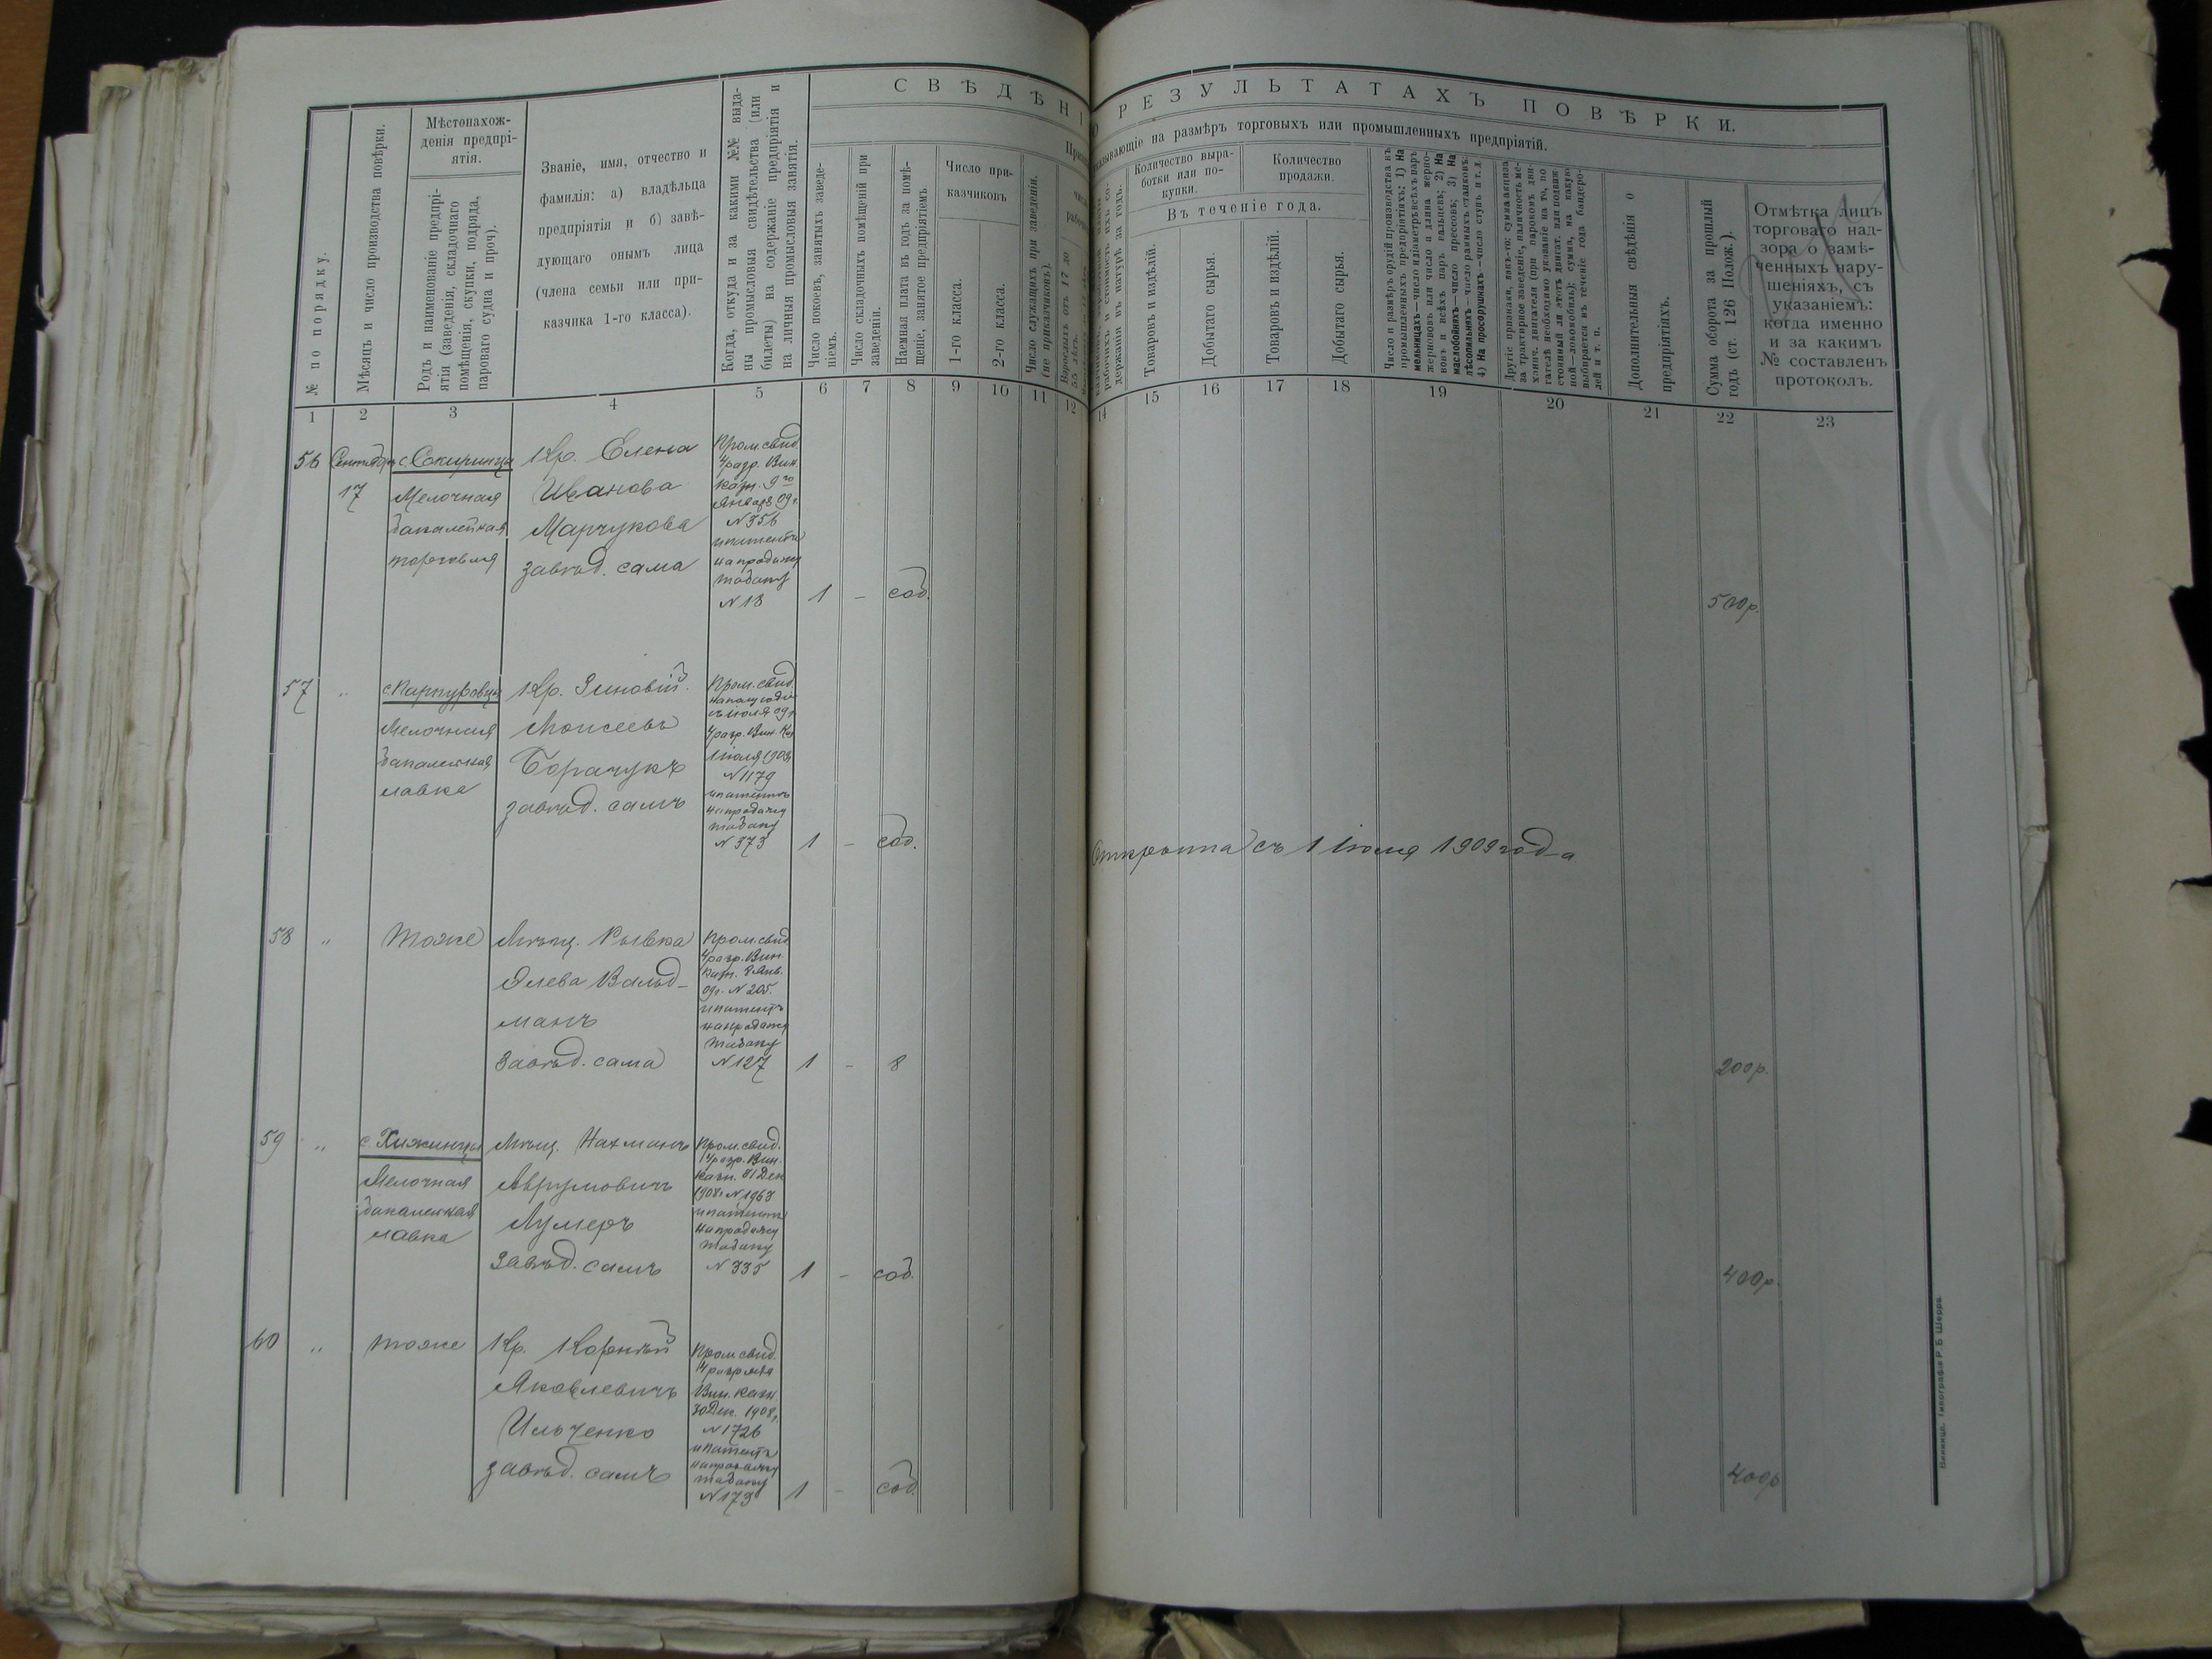 СВѢДѢНІ
О РЕЗУЛЬТАТАХЪ ПОВѢРКИ.
казывающіе на размѣръ торговыхъ или промышленныхъ предпріятій.
№ по порядку.
Мѣсяцъ и число производства повѣрки.
Мѣстонахож-
денія предпрі-
ятія.
Родъ и наименованіе предпрі-
ятія (заведенія, складочнаго
помѣщенія, скупки, подряда,
пароваго судна и проч).
Званіе, имя, отчество и
фамилія: а) владѣльца
предпріятія и б) завѣ-
дующаго онымъ лица
(члена семьи или при-
казчика 1-го класса).
Когда, откуда и за какими №№ выда-
ны промысловыя свидѣтельства (или
билеты) на содержаніе предпріятія и
на личныя промысловыя занятія.
Число покоевъ, занятыхъ заведе-
ніемъ.
Число складочныхъ помѣщеній при
заведеніи.
Наемная плата въ годъ за помѣ-
щеніе, занятое предпріятіемъ
Число при-
казчиковъ
1-го класса.
2-го класса.
Число служащихъ при заведеніи.
(не приказчиковъ).
Количество выра-
ботки или по-
купки.
Количество
продажи.
Въ теченіе года.
Товаровъ и издѣлій.
Добытаго сырья.
Товаровъ и издѣлій.
Добытаго сырья.
Число и размѣръ орудій производства въ
промышленныхъ предпріятіяхъ: 1) На
мельницахъ—число и діаметръ всѣхъ паръ
жернововъ или число и длина жерно-
вовъ и всѣхъ паръ вальцевъ; 2) На
маслобойняхъ—число прессовъ; 3) На
лѣсопильняхъ—число рамныхъ станковъ:
4) На просорушкахъ—число ступъ и т. д.
Дополнительныя свѣдѣнія о
предпріятіяхъ.
Сумма оборота за прошлый
годъ (ст. 126 Полож.).
Отмѣтка лицъ
торговаго над-
зора о замѣ-
ченныхъ нару-
шеніяхъ, съ
указаніемъ:
когда именно
и за какимъ
№ составленъ
протоколъ.
1 2 3 4 5 6 7 8 9 10 11 12 14 15 16 17 18 19 20 21 22 23
56 Сентября
17
с. Сокиринцы
Мелочная
бакалейная
торговля
Кр. Елена
Иванова
Марчукова
завѣд. сама
Пром. свид.
4 разр. Вин.
Казн. 9го
Января 09 г.
№ 356
и патентъ
на продажу
табаку
№ 18
1 – соб.
500 р.
57 "
с. Парпуровцы
Мелочная
бакалейная
лавка
Кр. Зиновій
Моисеевъ
Борачукъ
завѣд. самъ
Пром. свид.
на полугодіе
съ іюля 09 г.
4 разр. Вин. Каз
1 іюля 1909
№ 1179
и патентъ
на продажу
табаку
№ 373
1 – соб.
Открыта съ 1 Іюля 1909 года
58 "
тоже
Мѣщ. Рывка
Элева Вальд-
манъ
Завѣд. сама
Пром. свид.
4 разр. Вин.
Казн. 8 Янв.
09 г. № 205.
и патентъ
на продажу
табаку
№ 127
1 – 8
200 р.
59 "
с. Хижинцы
Мелочная
бакалейная
лавка
Мѣщ. Нахманъ
Аврумовичъ
Лумеръ
Завѣд. самъ
Пром. свид.
4 разр. Вин.
Казн. 31 Дек
1908 г. № 1963
и патентъ
на продажу
табаку
№ 335
1 – соб.
400 р.
60 "
тоже
Кр. Корнѣй
Яковлевичъ
Ильченко
завѣд. самъ
Пром. свид.
4 разряда
Вин. Казн
30 Дек. 1908 г.
№ 1726
и патентъ
на продажу
табаку
№ 173
1 – соб.
400 р
Винница. Типографія Р. Б. Шерра.